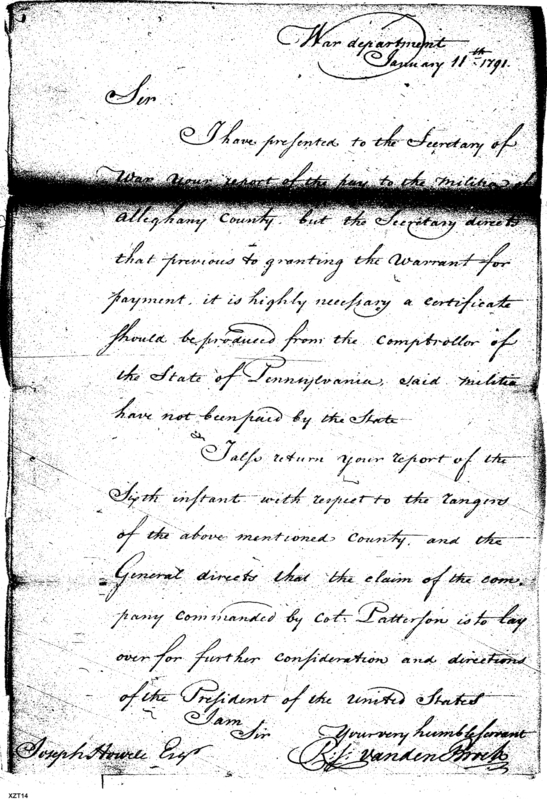 War department
January 11th 1791.
Sir
I have presented to the Secretary of
War your report of the pay to the militia of
alleghany County. but the Secretary directs
that previous to granting the Warrant for
payment. it is highly necessary a certificate
should be produced from the Comptrollor of
the State of Pennsylvania, said militia
have not been paid by the State
I also return your report of the
Sixth instant with respect to the rangers
of the above mentioned County. and the
General directs that the claim of the com-
pany commanded by Cot. Patterson is to lay
over for further consideration and directions
of the President of the United States
I am
Sir
Your very humble servant
Joseph Howell Esqr
vanden Broek
XZT14